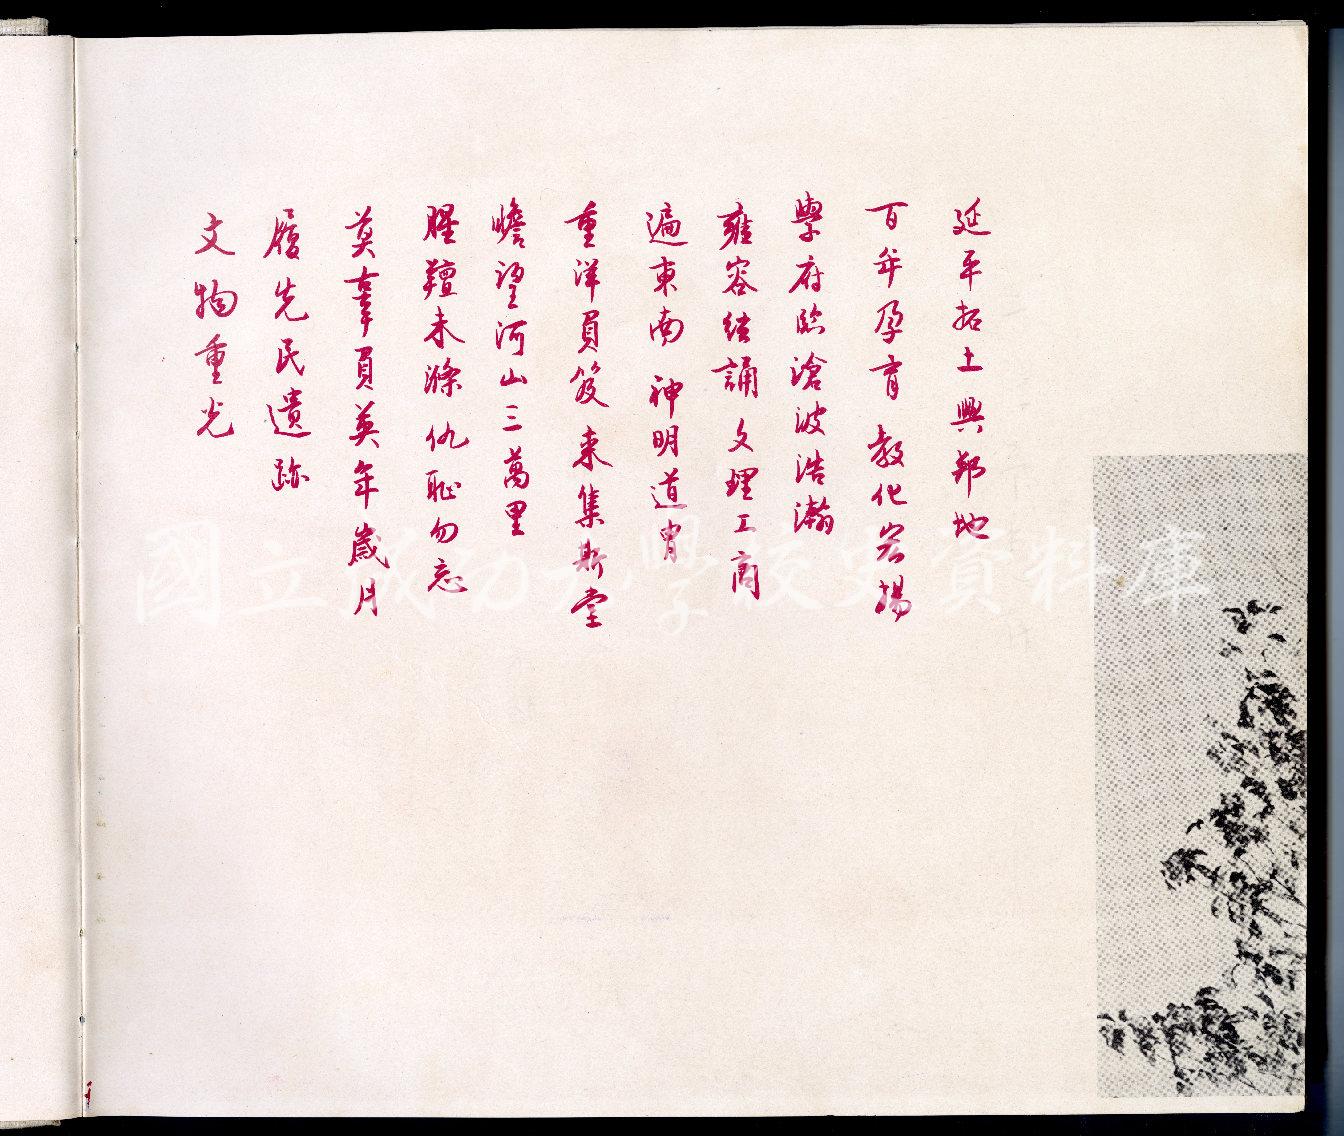 延平拓土興邦地
百年孕育教化宏揚
學府臨滄波浩瀚
雍容絃誦文理工商
遍東南 神明道胄
重洋負笈來集斯堂
瞻望河山三萬里
腥羶未滌仇恥勿忘
莫辜負英年歲月
履先民遺跡
文物重光
國立成功大學校史資料庫